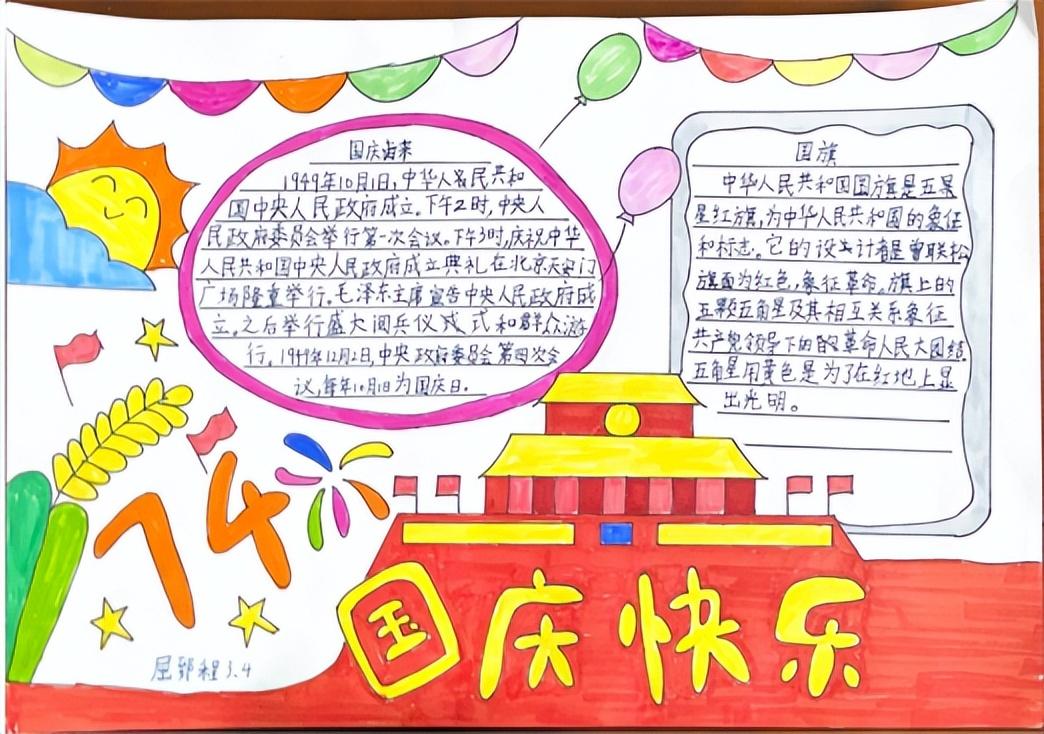 国庆由来
1949年10月1日,中华人民共和
国中央人民政府成立。下午2时,中央人
民政府委员会举行第一次会议。下午3时,庆祝中华
人民共和国中央人民政府成立典礼在北京天安门
广场隆重举行。毛泽东主席宣告中央人民政府成
立。之后举行盛大阅兵仪式和群众游
行。1949年12月2日,中央政府委员会第四次会
议,每年10月1日为国庆日。
国旗
中华人民共和国国旗是五星
星红旗,为中华人民共和国的象征
和标志。它的设计者是曾联松
旗面为红色,象征革命。旗上的
五颗五角星及其相互关系象征
共产党领导下的革命人民大团结
五角星用黄色是为了在红地上显
出光明。
74
国庆快乐
屈郅程 3.4